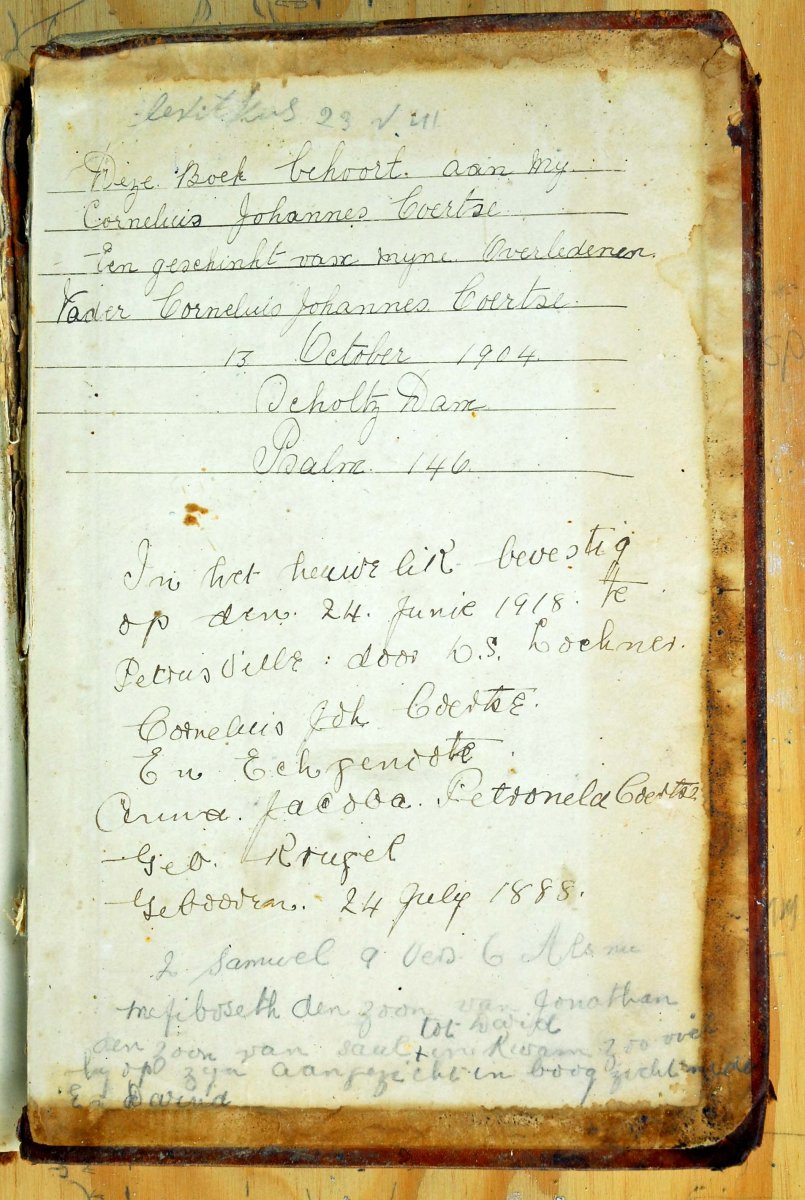 Levitikus 23 v 41
Deze Boek behoort aan My
Cornelius Johannes Coertse
Een geschinkt van myne Overledenen.
Vader Cornelius Johannes Coertse
13 October 1904
Scholtz Dam
Psalm 146
In het heuwelik bevestig
op den. 24. Junie 1918. te
Petrusville: door D.S. Lochner.
Cornelius Joh Coertse.
En Echgenoote
Anna. Jacoba. Petronela Coertse
Geb. Krugel
Gebooren. 24 July 1888.
2 Samuel 9 Vers 6 Als nu
mefiboseth den zoon van Jonathan
den zoon van saul tot David in kwam zoo viel
hy op zyn aangezicht en boog zich
En David